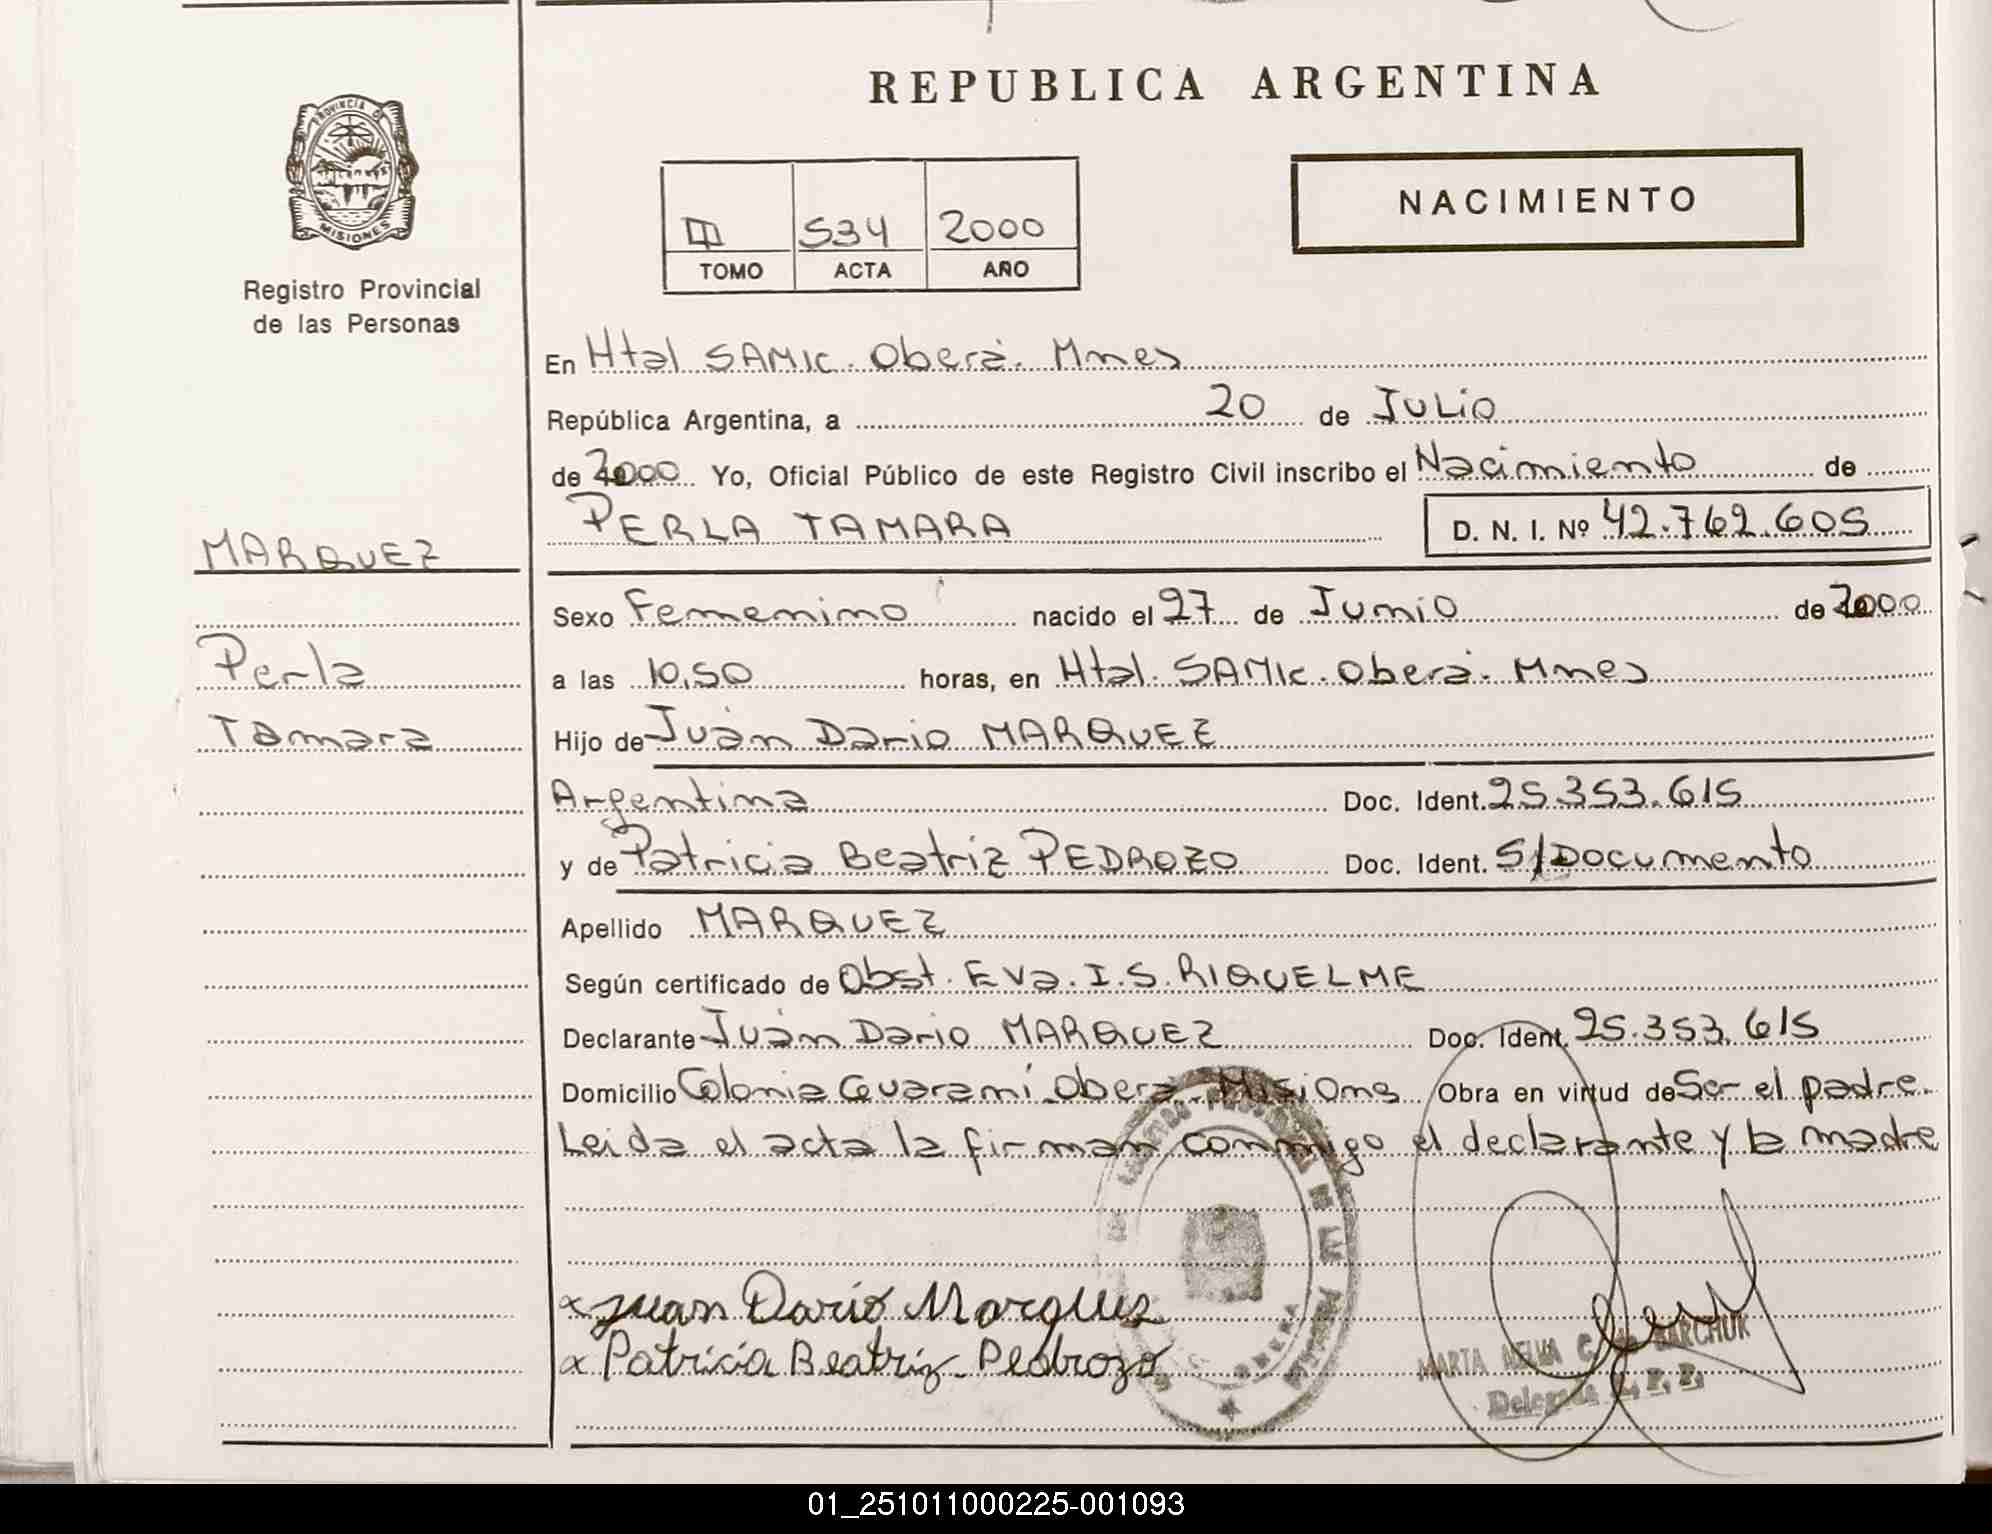 REPUBLICA ARGENTINA
PROVINCIA DE
MISIONES
Registro Provincial
de las Personas
NACIMIENTO
II 534 2000
TOMO ACTA AÑO
En Htal SAMIC. Oberá. Mnes
República Argentina, a 20 de JULIO
de 2000 Yo, Oficial Público de este Registro Civil inscribo el Nacimiento de
PERLA TAMARA D. N. I. Nº 42.762.605
MARQUEZ
Perla
Tamara
Sexo Femenino nacido el 27 de Junio de 2000
a las 10,50 horas, en Htal. SAMIC. Oberá. Mnes
Hijo de Juán Dario MARQUEZ
Argentina Doc. Ident. 25.353.615
y de Patricia Beatriz PEDROZO Doc. Ident. S/Documento
Apellido MARQUEZ
Según certificado de Obst. Eva. I. S. RIQUELME
Declarante Juán Dario MARQUEZ Doc. Ident. 25.353.615
Domicilio Colonia Guaraní. Oberá. Misiones Obra en virtud de Ser el padre.
Leida el acta la firman conmigo el declarante y la madre
x Juan Dario Marquez
x Patricia Beatriz Pedrozo
MARTA C. de BARCHUK
Delegada R. P. P.
OBERA
01_251011000225-001093